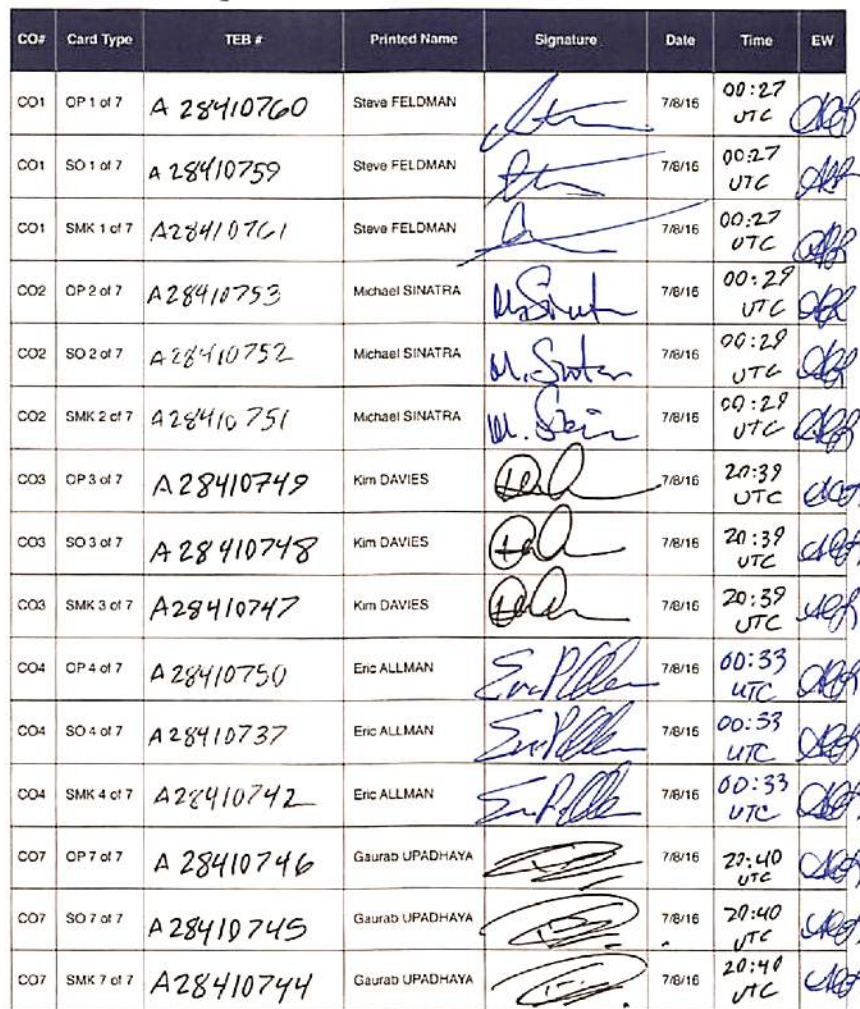 CO# Card Type TEB # Printed Name Signature Date Time EW
CO1 OP 1 of 7 A 28410760 Steve FELDMAN 7/8/16 00:27 UTC
CO1 SO 1 of 7 A 28410759 Steve FELDMAN 7/8/16 00:27 UTC
CO1 SMK 1 of 7 A28410761 Steve FELDMAN 7/8/16 00:27 UTC
CO2 OP 2 of 7 A28410753 Michael SINATRA 7/8/16 00:29 UTC
CO2 SO 2 of 7 A28410752 Michael SINATRA 7/8/16 00:29 UTC
CO2 SMK 2 of 7 A28410751 Michael SINATRA 7/8/16 00:29 UTC
CO3 OP 3 of 7 A28410749 Kim DAVIES 7/8/16 20:39 UTC
CO3 SO 3 of 7 A28410748 Kim DAVIES 7/8/16 20:39 UTC
CO3 SMK 3 of 7 A28410747 Kim DAVIES 7/8/16 20:39 UTC
CO4 OP 4 of 7 A28410750 Eric ALLMAN 7/8/16 00:33 UTC
CO4 SO 4 of 7 A28410737 Eric ALLMAN 7/8/16 00:53 UTC
CO4 SMK 4 of 7 A28410742 Eric ALLMAN 7/8/16 00:33 UTC
CO7 OP 7 of 7 A 28410746 Gaurab UPADHAYA 7/8/16 20:40 UTC
CO7 SO 7 of 7 A28410745 Gaurab UPADHAYA 7/8/16 20:40 UTC
CO7 SMK 7 of 7 A28410744 Gaurab UPADHAYA 7/8/16 20:40 UTC